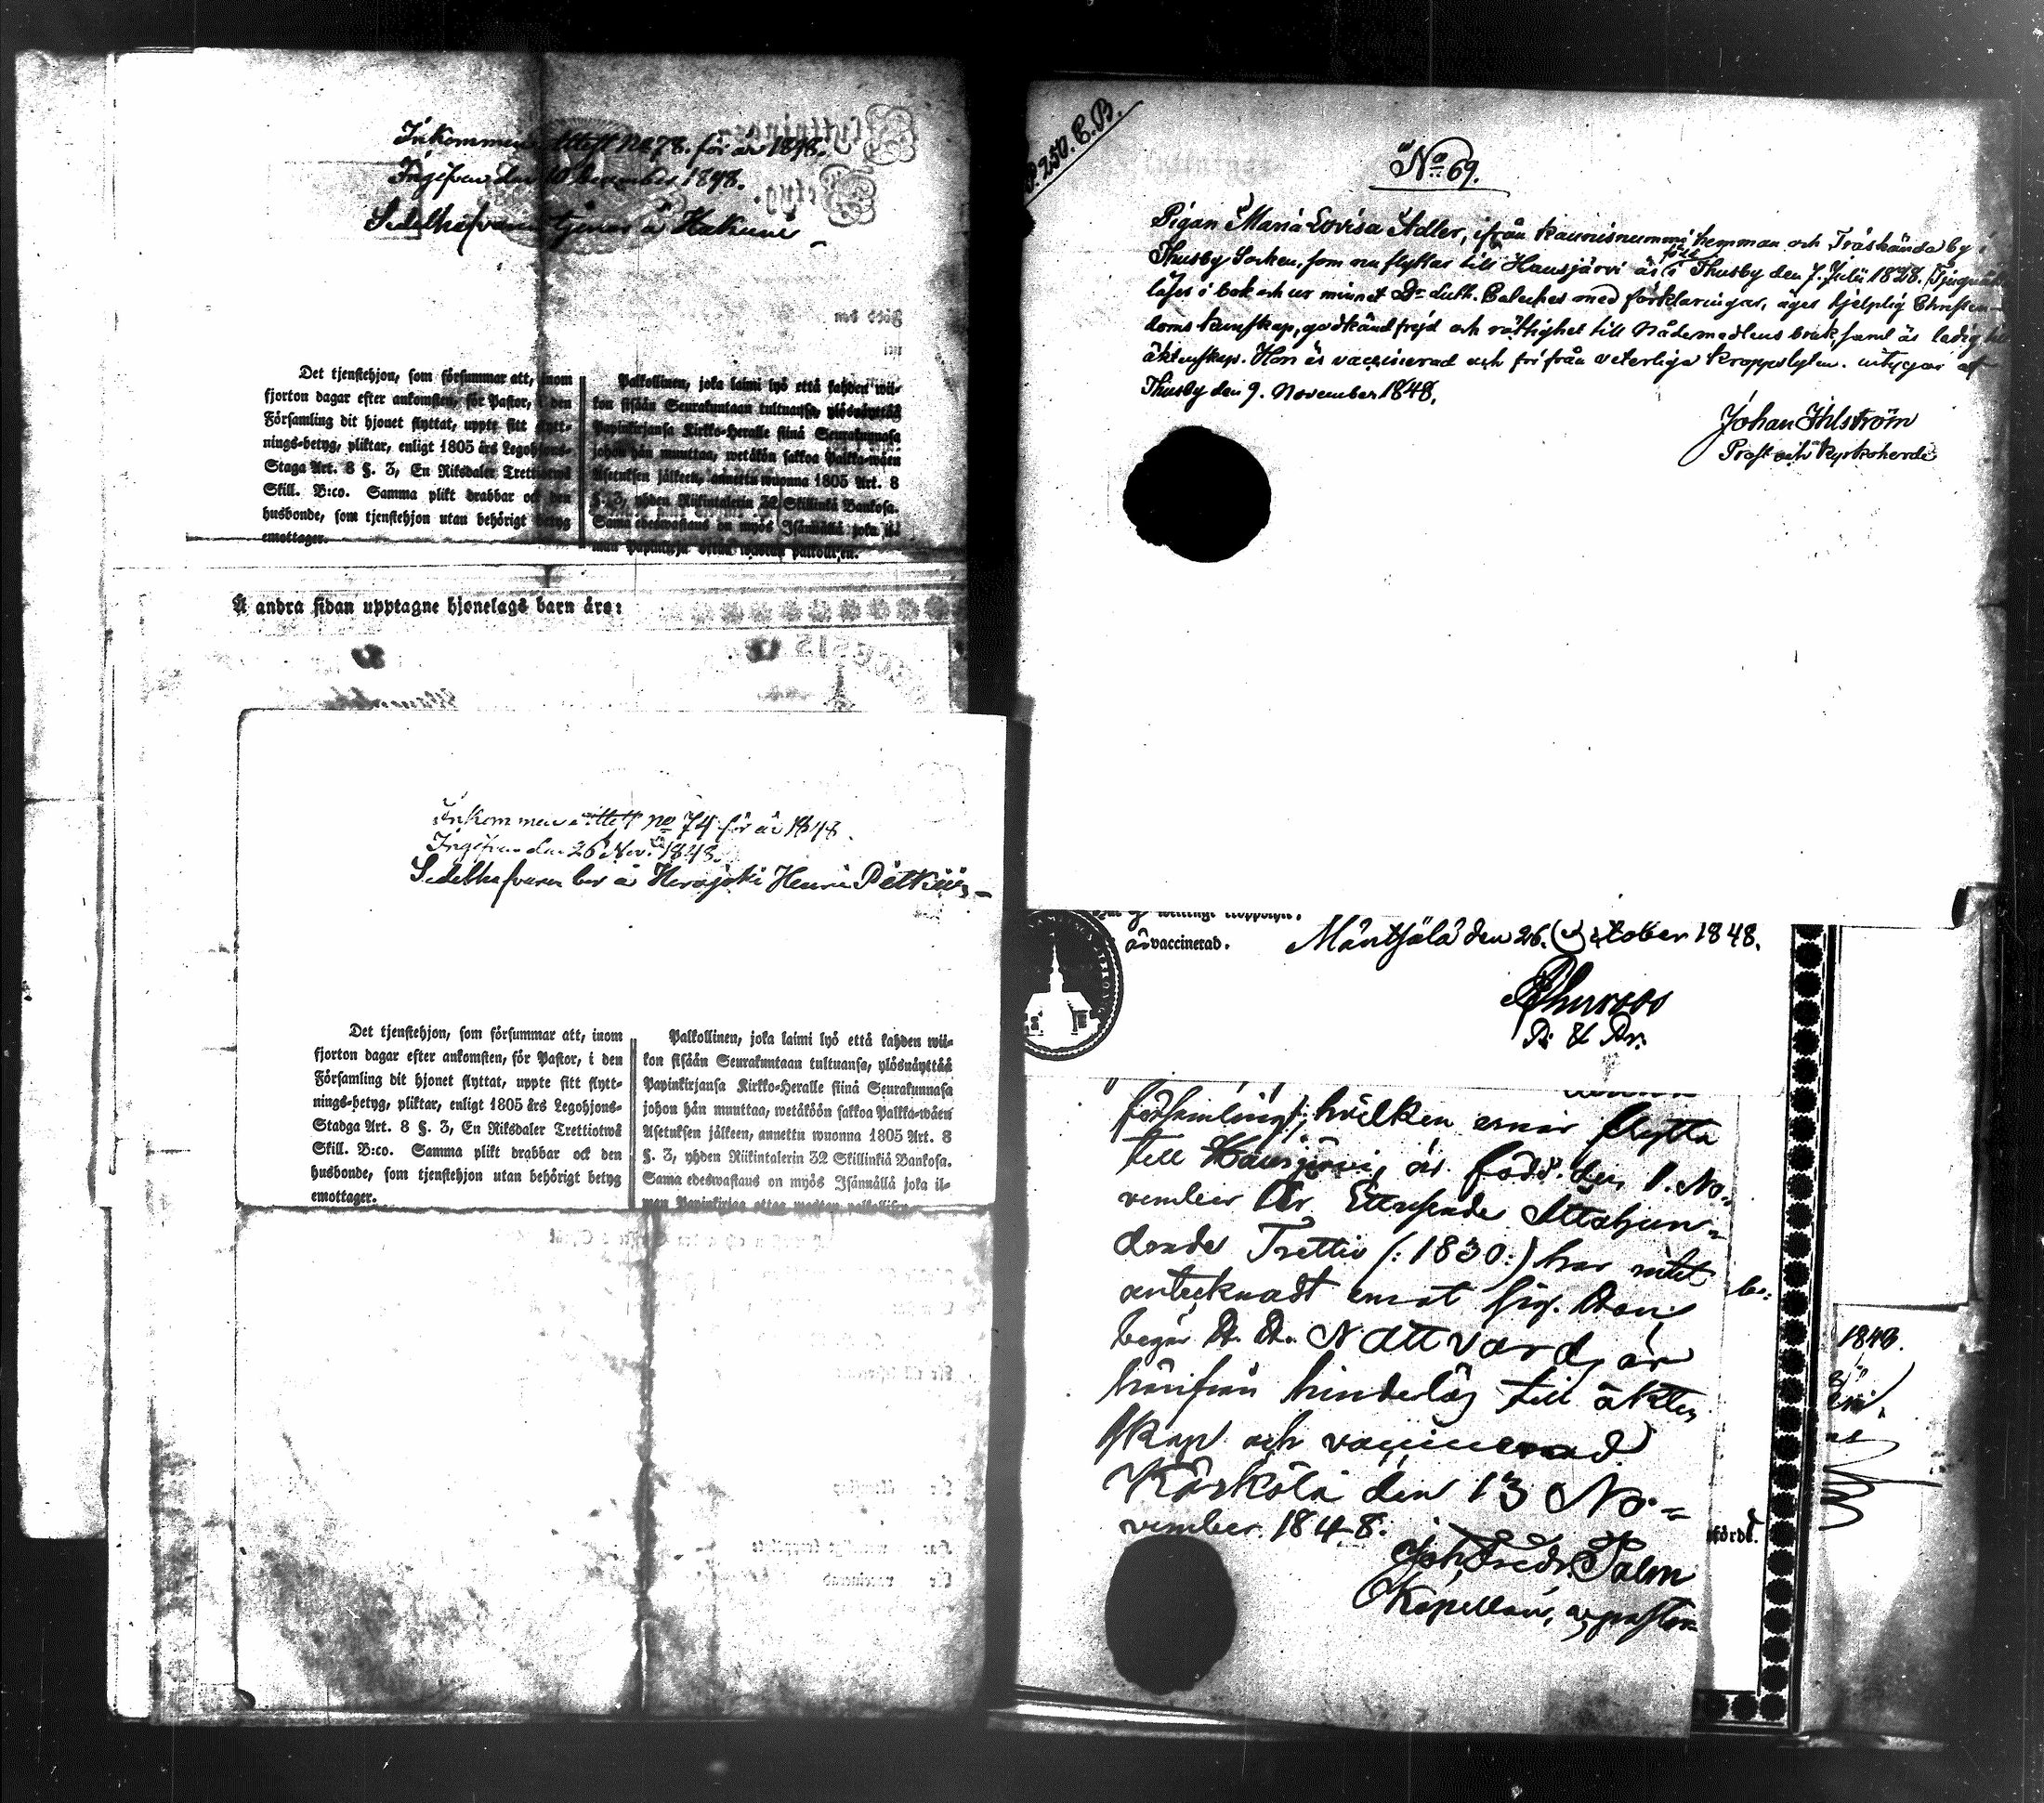 Inkommen attest No 78. för år 1848.
Ingifven den 10 December 1848.
Sedelhafvaren tjenar å Hakuni
Det tjenstehjon, som försummar att, inom
fjorton dagar efter ankomsten, för Pastor, i den
Församling dit hjonet flyttat, uppte sitt flytt-
nings-betyg, pliktar, enligt 1805 års Legohjons-
Staga Art. 8 §. 3, En Riksdaler Trettiotwå
Skill. B:co. Samma plikt drabbar ock den
husbonde, som tjenstehjon utan behörigt betyg
emottager.
Palkollinen, joka laimi lyö että kahden wii-
kon sisään Seurakuntaan tultuansa, ylösnäyttää
Papinkirjansa Kirkko-Heralle siinä Seurakunnasa
johon hän muuttaa, wetäköön sakkoa Palkka-wäen
Asetuksen jälkeen, annettu wuonna 1805 Art. 8
§. 3, yhden Riikintalerin 32 Skillinkiä Bankosa.
Sama edeswastaus on myös Isännällä joka il-
man Papinkirjaa ottaa wastan palkollisen.
Å andra sidan upptagne hjonelags barn äro:
Inkommen attest no 74 för år 1848.
Ingifven den 26 Nov. 1848.
Sedelhafvaren bor å Herajoki Heuru Pätkiii
Det tjenstehjon, som försummar att, inom
fjorton dagar efter ankomsten, för Pastor, i den
Församling dit hjonet flyttat, uppte sitt flytt-
nings-betyg, pliktar, enligt 1805 års Legohjons-
Stadga Art. 8 §. 3, En Riksdaler Trettiotwå
Skill. B:co. Samma plikt drabbar ock den
husbonde, som tjenstehjon utan behörigt betyg
emottager.
Palkollinen, joka laimi lyö että kahden wii-
kon sisään Seurakuntaan tultuansa, ylösnäyttää
Papinkirjansa Kirkko-Heralle siinä Seurakunnasa
johon hän muuttaa, wetäköön sakkoa Palkka-wäen
Asetuksen jälkeen, annettu wuonna 1805 Art. 8
§. 3, yhden Riikintalerin 32 Skillinkiä Bankosa.
Sama edeswastaus on myös Isännällä joka il-
man Papinkirjaa ottaa wastan palkollisen
P. 250. C.B.
No 69.
Pigan Maria Lovisa Adler, ifrån Kaunisnummi hemman och Träskända by i
Thusby Socken, som nu flyttar till Hausjärvi är född i Thusby den 7. Julii 1828.
läser i bok och ur minnet Dr Luth. Cateches med förklaringar, äger hjelplig Christen-
doms kunskap, godkänd frejd och rättighet till Nådemedlens bruk, samt är ledig till
äktenskap. Hon är vaccinerad och fri från veterliga kroppslyten. intygar af
Thusby den 9. November 1848.
Johan Ihlström
Prost och Kyrkoherde
är vaccinerad.
Mäntsälä den 26. October 1848.
församling, hvilken ernar flytta
till Hausjärvi, är född den 1. No-
vember År Ettusende Åttahun-
dende Trettio (: 1830:) har intet
antecknadt emot sig. Dan
begår H. H. Nattvard, är
härifrån hinderlös till äkten
skap och vaccinerad
Kärkölä den 13 No-
vember 1848.
Joh. Fredr. Palm
Kapellan,
1848.